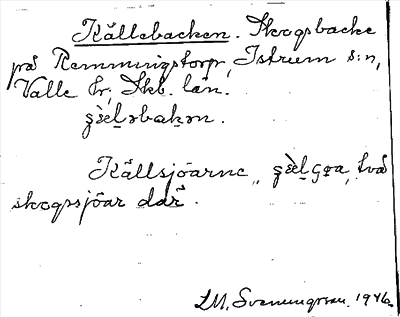 Källebacken. Skogsbacke
på Remmingstorp, Istrum s:n,
Valle hr, Skb. län.
Källsjöarne, två
skogssjöar där.
L.M. Svenungsson. 1946.